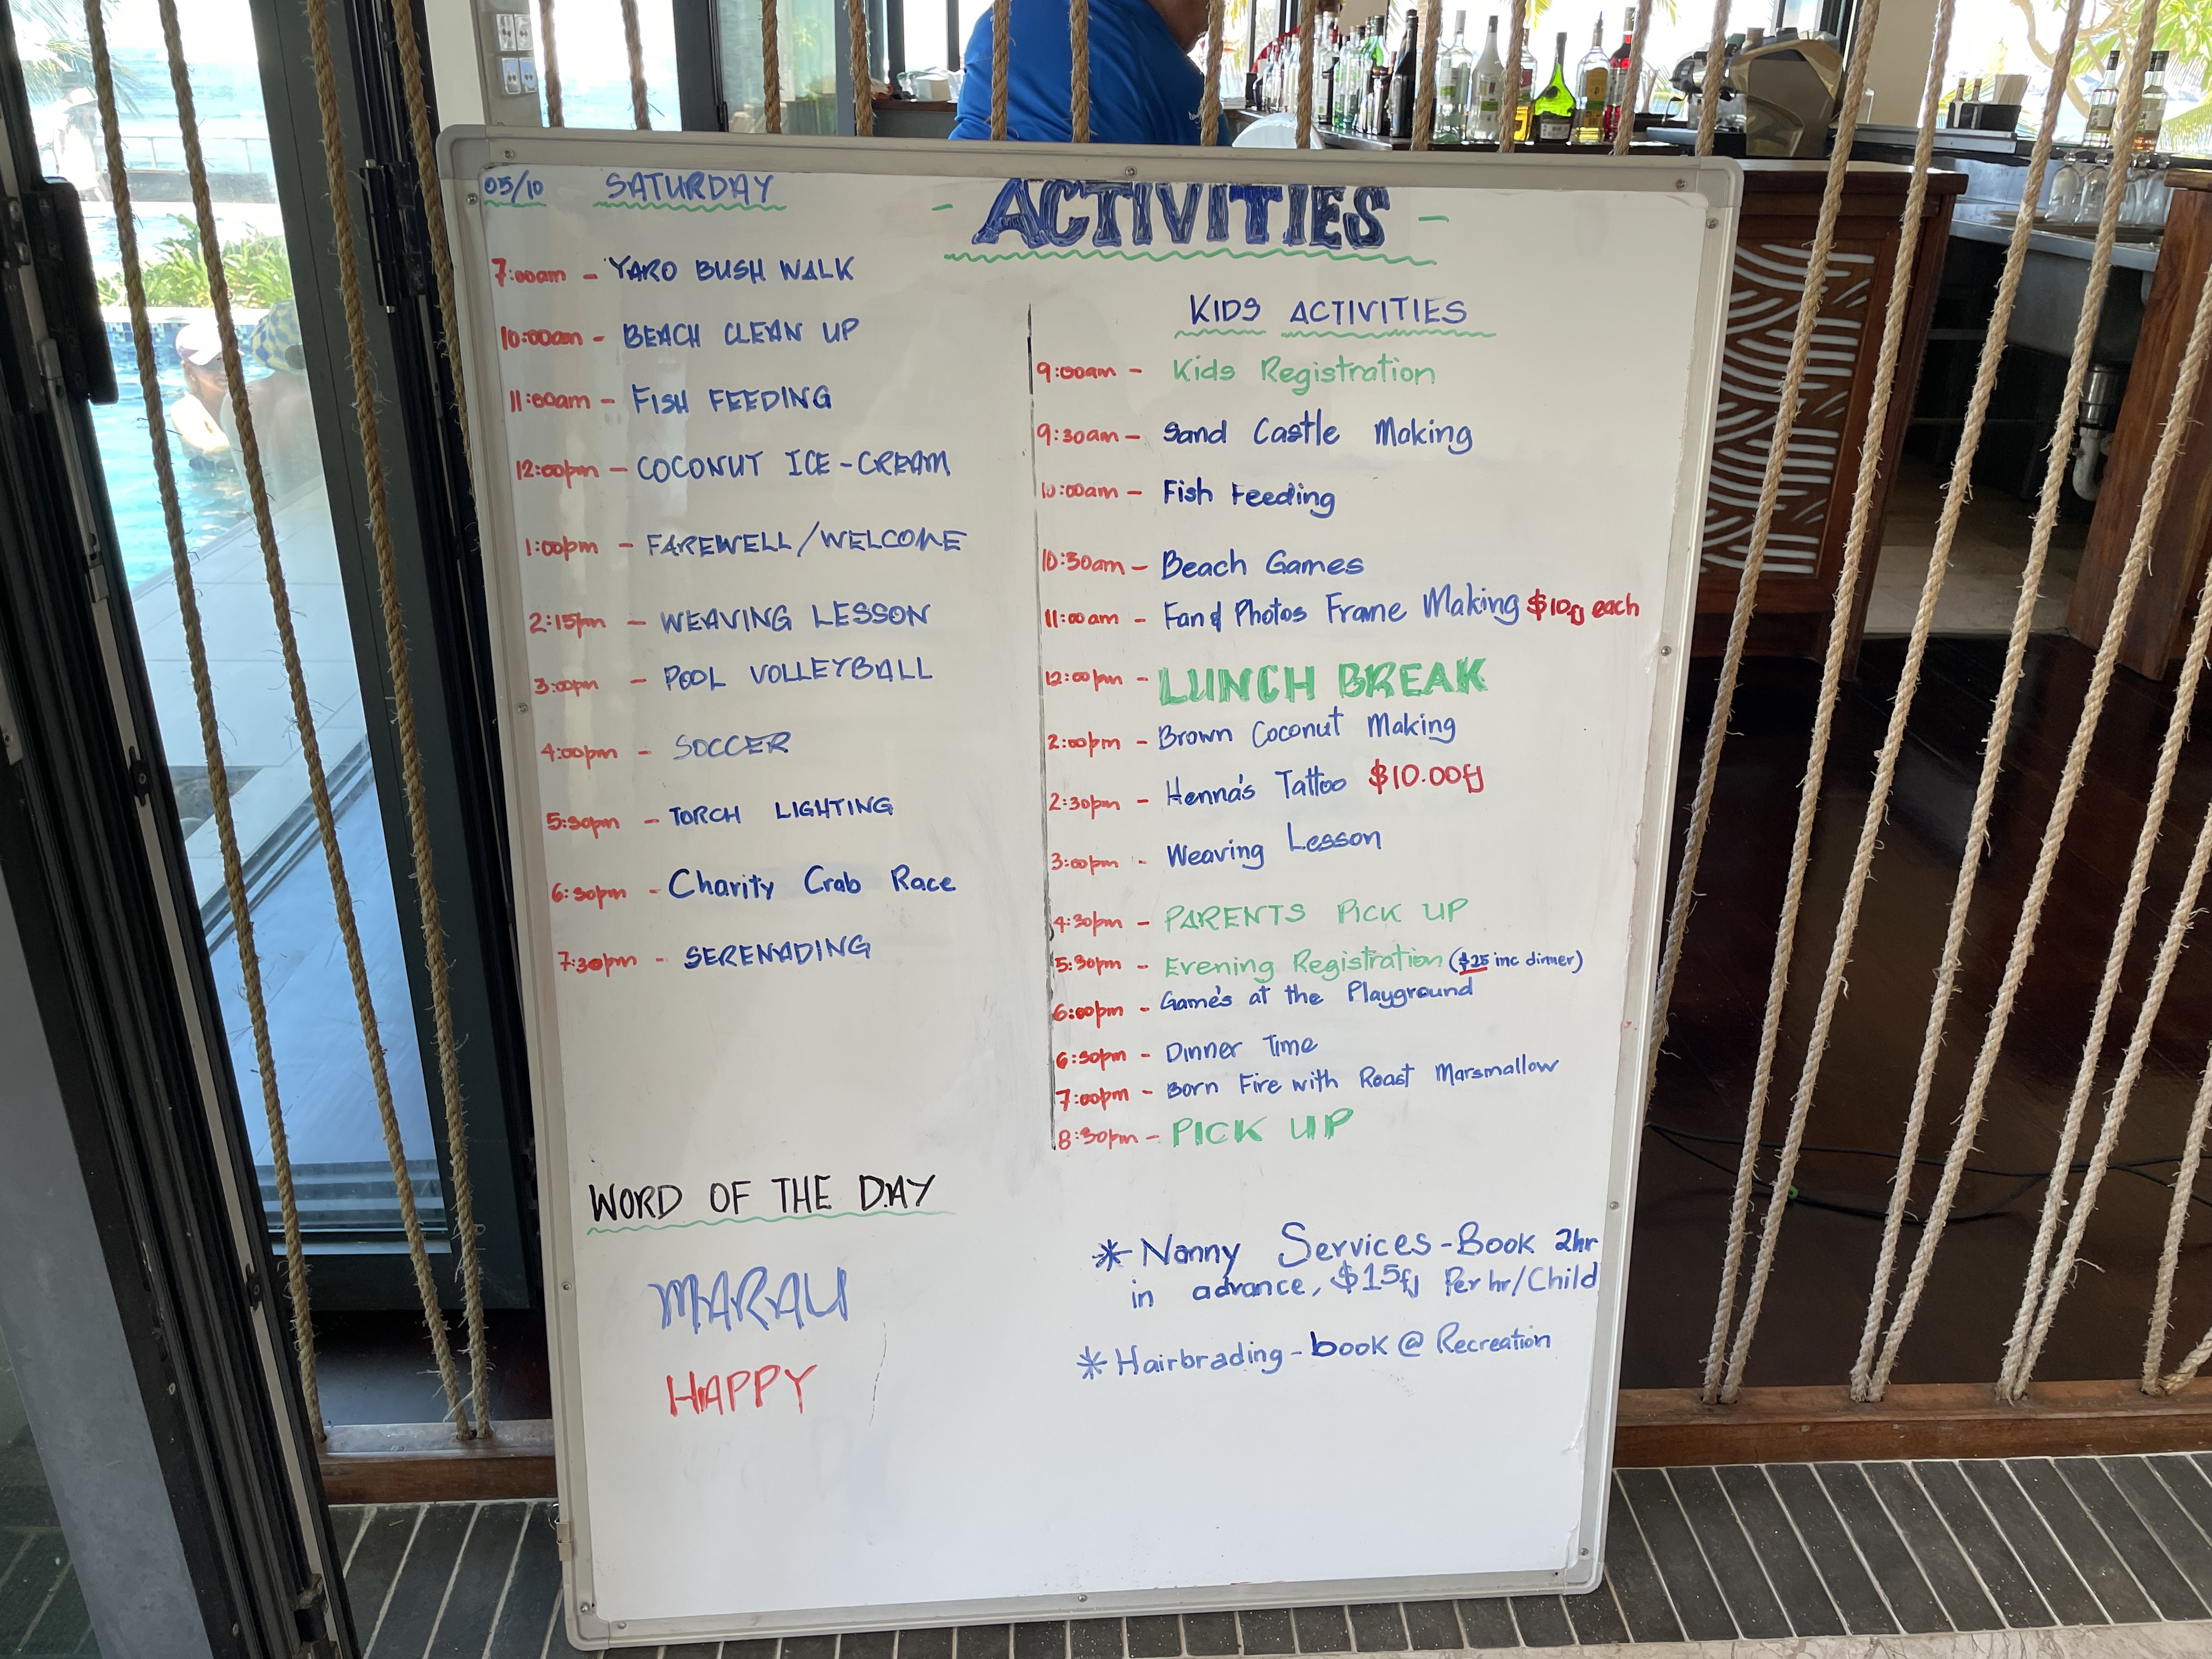 05/10 SATURDAY
- ACTIVITIES -
7:00am - YARO BUSH WALK
10:00am - BEACH CLEAN UP
11:00am - FISH FEEDING
12:00pm - COCONUT ICE-CREAM
1:00pm - FAREWELL/WELCOME
2:15pm - WEAVING LESSON
3:00pm - POOL VOLLEYBALL
4:00pm - SOCCER
5:30pm - TORCH LIGHTING
6:30pm - Charity Crab Race
7:30pm - SERENADING
KIDS ACTIVITIES
9:00am - Kids Registration
9:30am - Sand Castle Making
10:00am - Fish Feeding
10:30am - Beach Games
11:00am - Fan & Photos Frame Making $10fj each
12:00pm - LUNCH BREAK
2:00pm - Brown Coconut Making
2:30pm - Henna's Tattoo $10.00fj
3:00pm - Weaving Lesson
4:30pm - PARENTS PICK UP
5:30pm - Evening Registration ($25 inc dinner)
6:00pm - Game's at the Playground
6:30pm - Dinner Time
7:00pm - Born Fire with Roast Marsmallow
8:30pm - PICK UP
WORD OF THE DAY
MARAU
HAPPY
* Nanny Services - Book 2hr
in advance, $15fj Per hr/Child
* Hairbrading - book @ Recreation